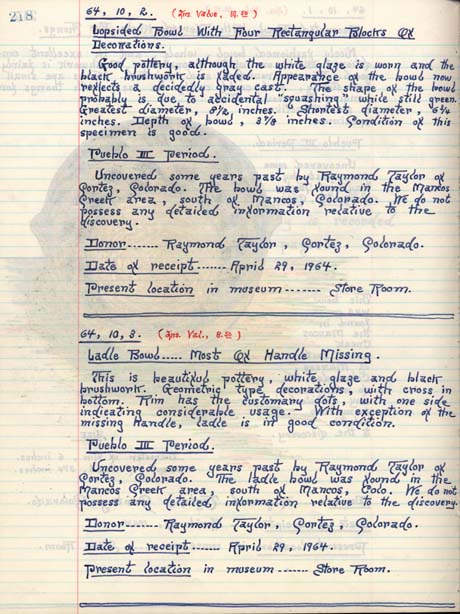 218
64, 10, 2. (Ins. Value, 15.00)
Lopsided Bowl With Four Rectangular Blocks Of
Decorations.
Good pottery, although the white glaze is worn and the
black brushwork is faded. Appearance of the bowl now
reflects a decidedly gray cast. The shape of the bowl
probably is due to accidental "squashing" while still green.
Greatest diameter, inches. Shortest diameter,
inches. Depth of bowl, 3 7/8 inches. Condition of this
specimen is good.
Pueblo III Period.
Uncovered some years past by Raymond Taylor of
Cortez, Colorado. The bowl was found in the Mancos
Creek area, south of Mancos, Colorado. We do not
possess any detailed information relative to the
discovery.
Donor------- Raymond Taylor, Cortez, Colorado.
Date of receipt------- April 29, 1964.
Present location in museum------- Store Room.
64, 10, 3. (Ins. Val., 8.00)
Ladle Bowl..... Most Of Handle Missing.
This is beautiful pottery, white glaze and black
brushwork. Geometric type decorations, with cross in
bottom. Rim has the customary dots, with one side
indicating considerable usage. With exception of the
missing handle, ladle is in good condition.
Pueblo III Period.
Uncovered some years past by Raymond Taylor of
Cortez, Colorado. The ladle bowl was found in the
Mancos Creek area, south of Mancos, Colo. We do not
possess any detailed information relative to the discovery.
Donor------- Raymond Taylor, Cortez, Colorado.
Date of receipt------- April 29, 1964.
Present location in museum------- Store Room.